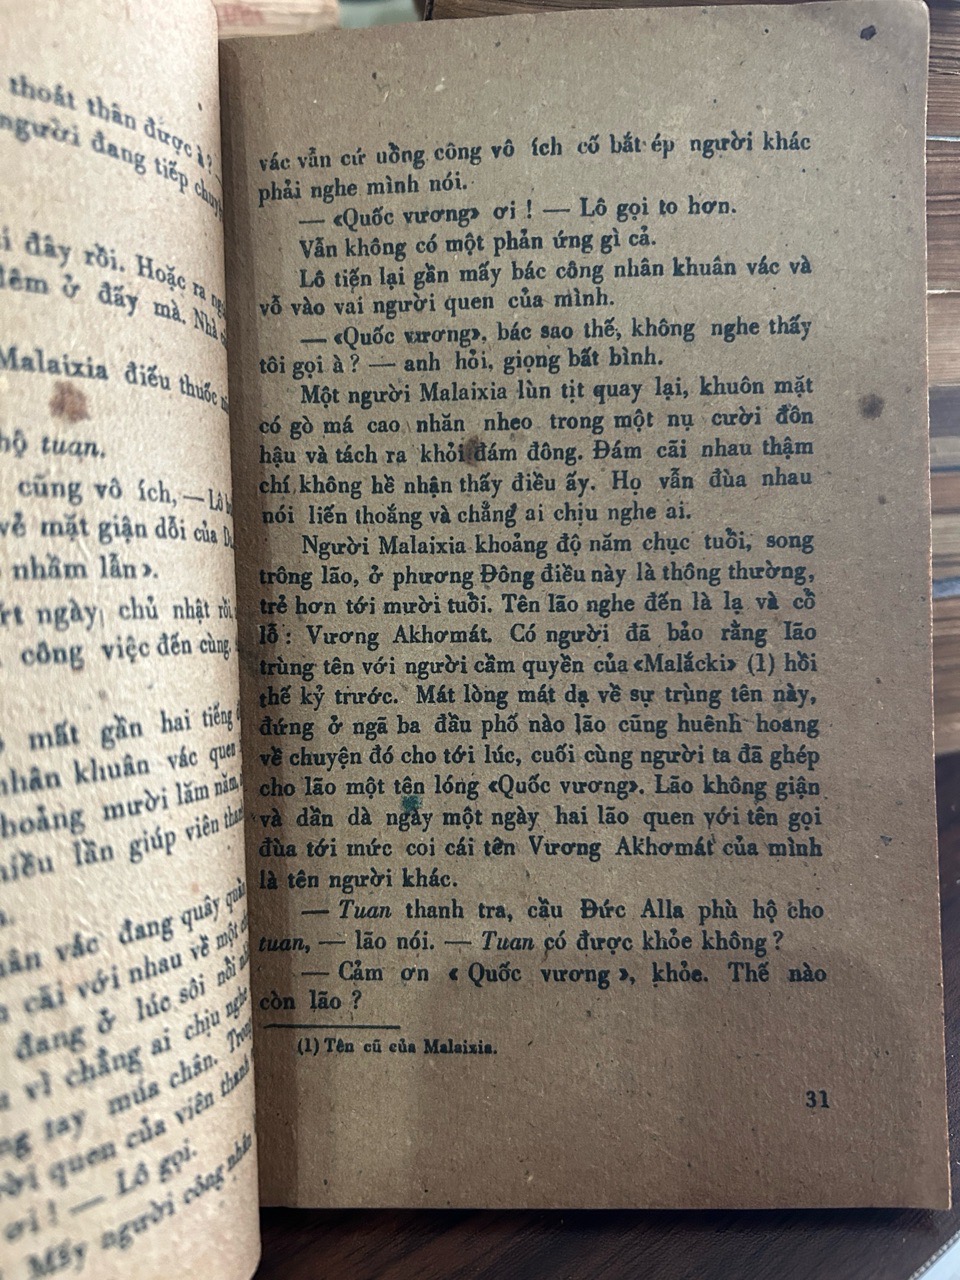 thoát thân được à?
người đang tiếp
đây rồi. Hoặc ra
ở đấy mà. Nhà
Malaixia điếu thuốc
hộ tuạn.
cũng vô ích, — Lô
vẻ mặt giận dỗi của
nhầm lẫn».
ngày, chủ nhật rồi
công việc đến cùng.
mất gần hai tiếng
nhân khuân vác quen
khoảng mười lăm năm,
nhiều lần giúp viên
vác đang quây quần
cãi với nhau về một
đang ở lúc sôi nổi
vì chẳng ai chịu nghe
tay múa chân. Trong
quen của viên thanh
ơi! — Lô gọi.
Mấy người công nhân
vác vẫn cứ uồng công vô ích cố bắt ép người khác
phải nghe mình nói.
— «Quốc vương» ơi ! — Lô gọi to hơn.
Vẫn không có một phản ứng gì cả.
Lô tiến lại gần mấy bác công nhân khuân vác và
vỗ vào vai người quen của mình.
— «Quốc vương», bác sao thế, không nghe thấy
tôi gọi à ? — anh hỏi, giọng bất bình.
Một người Malaixia lùn tịt quay lại, khuôn mặt
có gò má cao nhăn nheo trong một nụ cười đôn
hậu và tách ra khỏi đám đông. Đám cãi nhau thậm
chí không hề nhận thấy điều ấy. Họ vẫn đùa nhau
nói liến thoắng và chẳng ai chịu nghe ai.
Người Malaixia khoảng độ năm chục tuổi, song
trông lão, ở phương Đông điều này là thông thường,
trẻ hơn tới mười tuổi. Tên lão nghe đến là lạ và cồ
lỗ : Vương Akhơmát. Có người đã bảo rằng lão
trùng tên với người cầm quyền của «Malắcki» (1) hồi
thế kỷ trước. Mát lòng mát dạ về sự trùng tên này,
đứng ở ngã ba đầu phố nào lão cũng huênh hoang
về chuyện đó cho tới lúc, cuối cùng người ta đã ghép
cho lão một tên lóng «Quốc vương». Lão không giận
và dần dà ngày một ngày hai lão quen với tên gọi
đùa tới mức coi cái tên Vương Akhơmát của mình
là tên người khác.
— Tuan thanh tra, cầu Đức Alla phù hộ cho
tuan, — lão nói. — Tuan có được khỏe không ?
— Cảm ơn « Quốc vương », khỏe. Thế nào
còn lão ?
(1) Tên cũ của Malaixia.
31